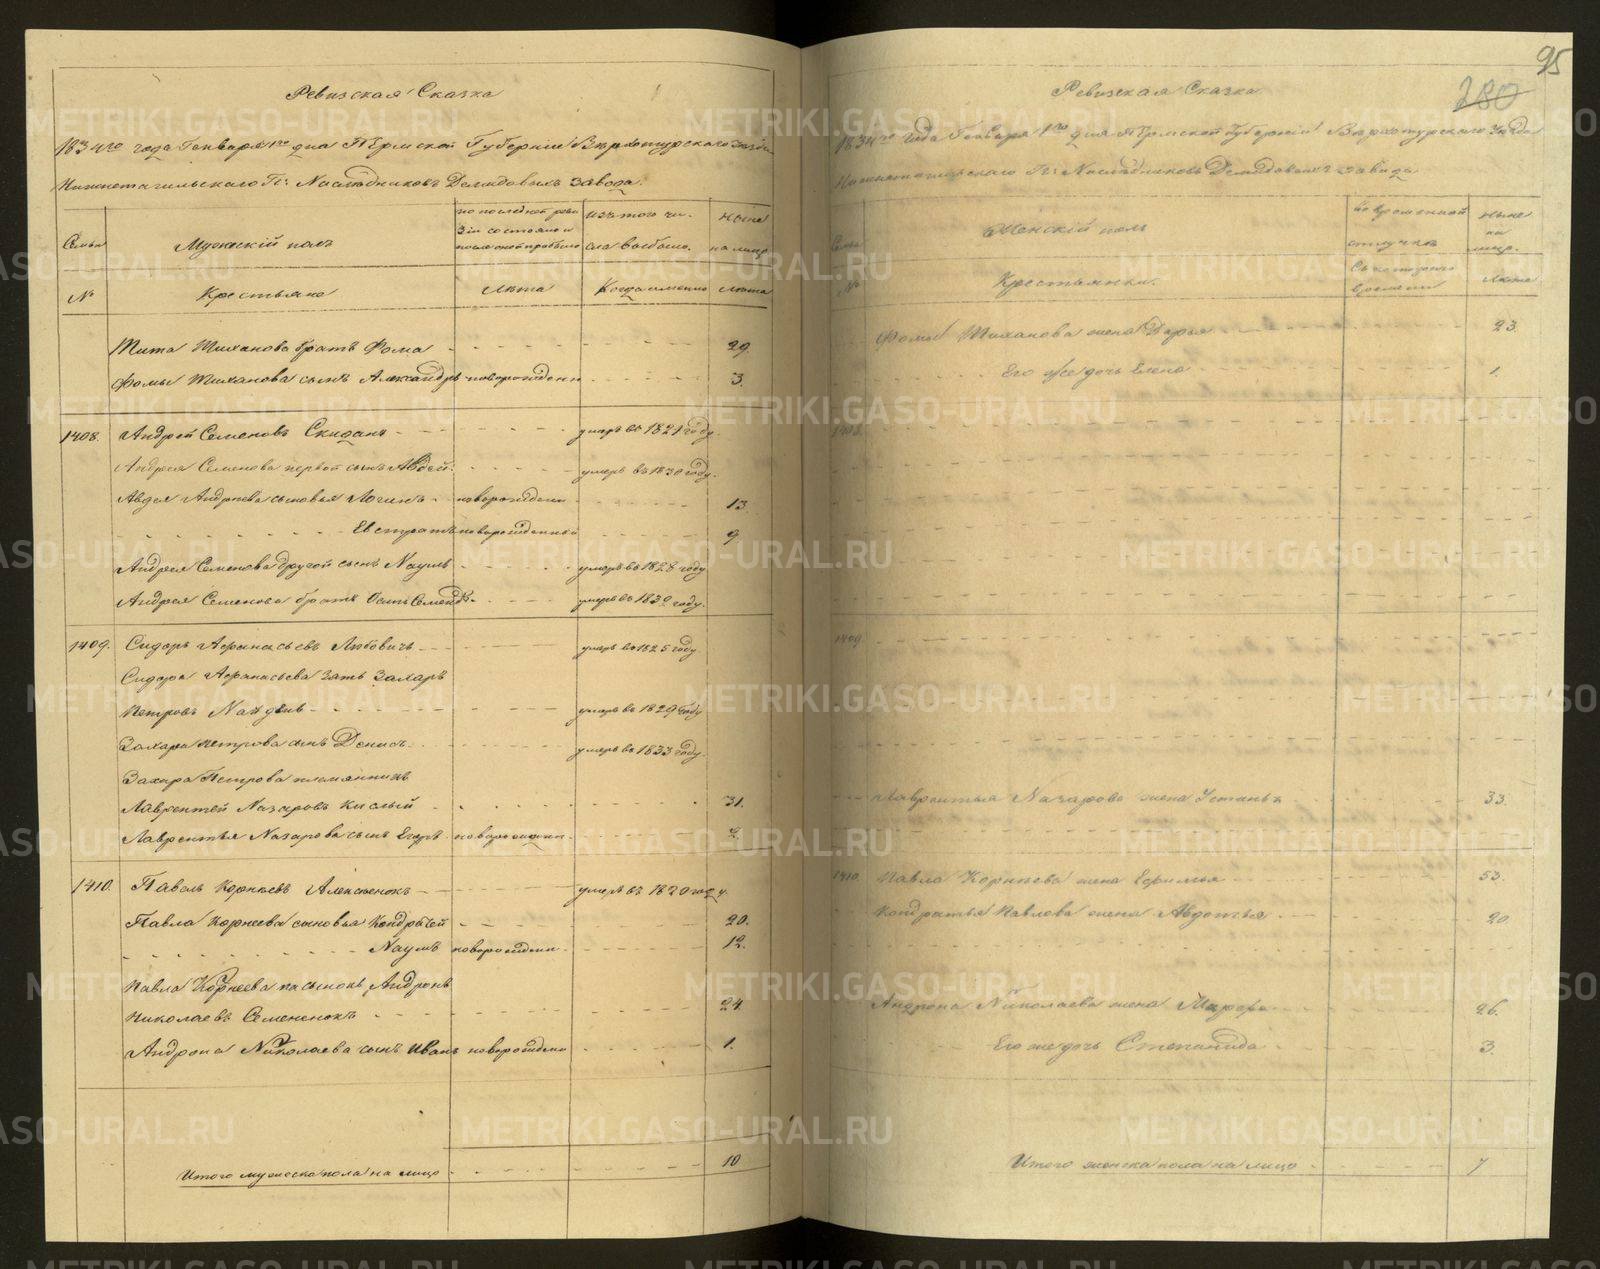 Ревизская Сказка
1834го года Генваря 1го дня Пермской Губернiи Верхотурскаго уезда
Нижнетагильскаго Гг: Наследниковъ Демидовыхъ завода.
Семьи
Мужескiй полъ
по последней реви
зiи состояло и
после оной прибыло
изъ того чи-
сла выбыло.
ныне
на лицо
№
Крестьяне
Лета
Когда именно
Лета
Тита Тиханова братъ Фома 29.
Фомы Тиханова сынъ Александръ новорожденн 3.
1408. Андрей Семеновъ умеръ въ 1821 году.
Андрея Семенова первой сынъ Авдей. умеръ въ 1830 году.
Авдея Андреева сыновья Логинъ новорожденн 13.
Евстратъ новорожденный 9
Андрея Семенова другой сынъ Наумъ умеръ въ 1828 году
Андрея Семенова братъ умеръ въ 1830 году.
1409. Сидоръ Афанасьевъ умеръ въ 1825 году
Сидора Афанасьева зять Захаръ
Петровъ умеръ въ 1829 году
Захара Петрова сынъ Денисъ умеръ въ 1833 году.
Захара Петрова племянникъ
Лаврентей Назаровъ Кислый 31.
Лаврентья Назарова сынъ Егоръ новорожденн 2.
1410. Павелъ Корнеевъ умеръ въ 1820 году.
Павла Корнеева сыновья Кондратей 20.
Наумъ новорожденн. 12.
Павла Корнеева пасынокъ Андронъ
Николаевъ Семененокъ 24.
Андрона Николаева сынъ Иванъ новорожденн 1.
Итого мужеска пола на лицо 10
95
280
Ревизская Сказка
1834го года Генваря 1го дня Пермской Губернiи Верхотурскаго уезда
Нижнетагильскаго Гг: Наследниковъ Демидовыхъ завода
Семьи
Женскiй полъ
во временной
отлучке
ныне
на
лицо.
№
Крестьянки.
Съ котораго
времени
Лета
Фомы Тиханова жена Дарья 23.
Его же дочь Елена 1.
1408.
1409.
Лаврентья Назарова жена 33.
1410. Павла Корнеева жена Ефимья 53.
Кондратья Павлова жена Авдотья 20.
Андрона Николаева жена Марфа 26.
Его же дочь Степанида 3.
Итого женска пола на лицо 7
METRIKI.GASO-URAL.RU